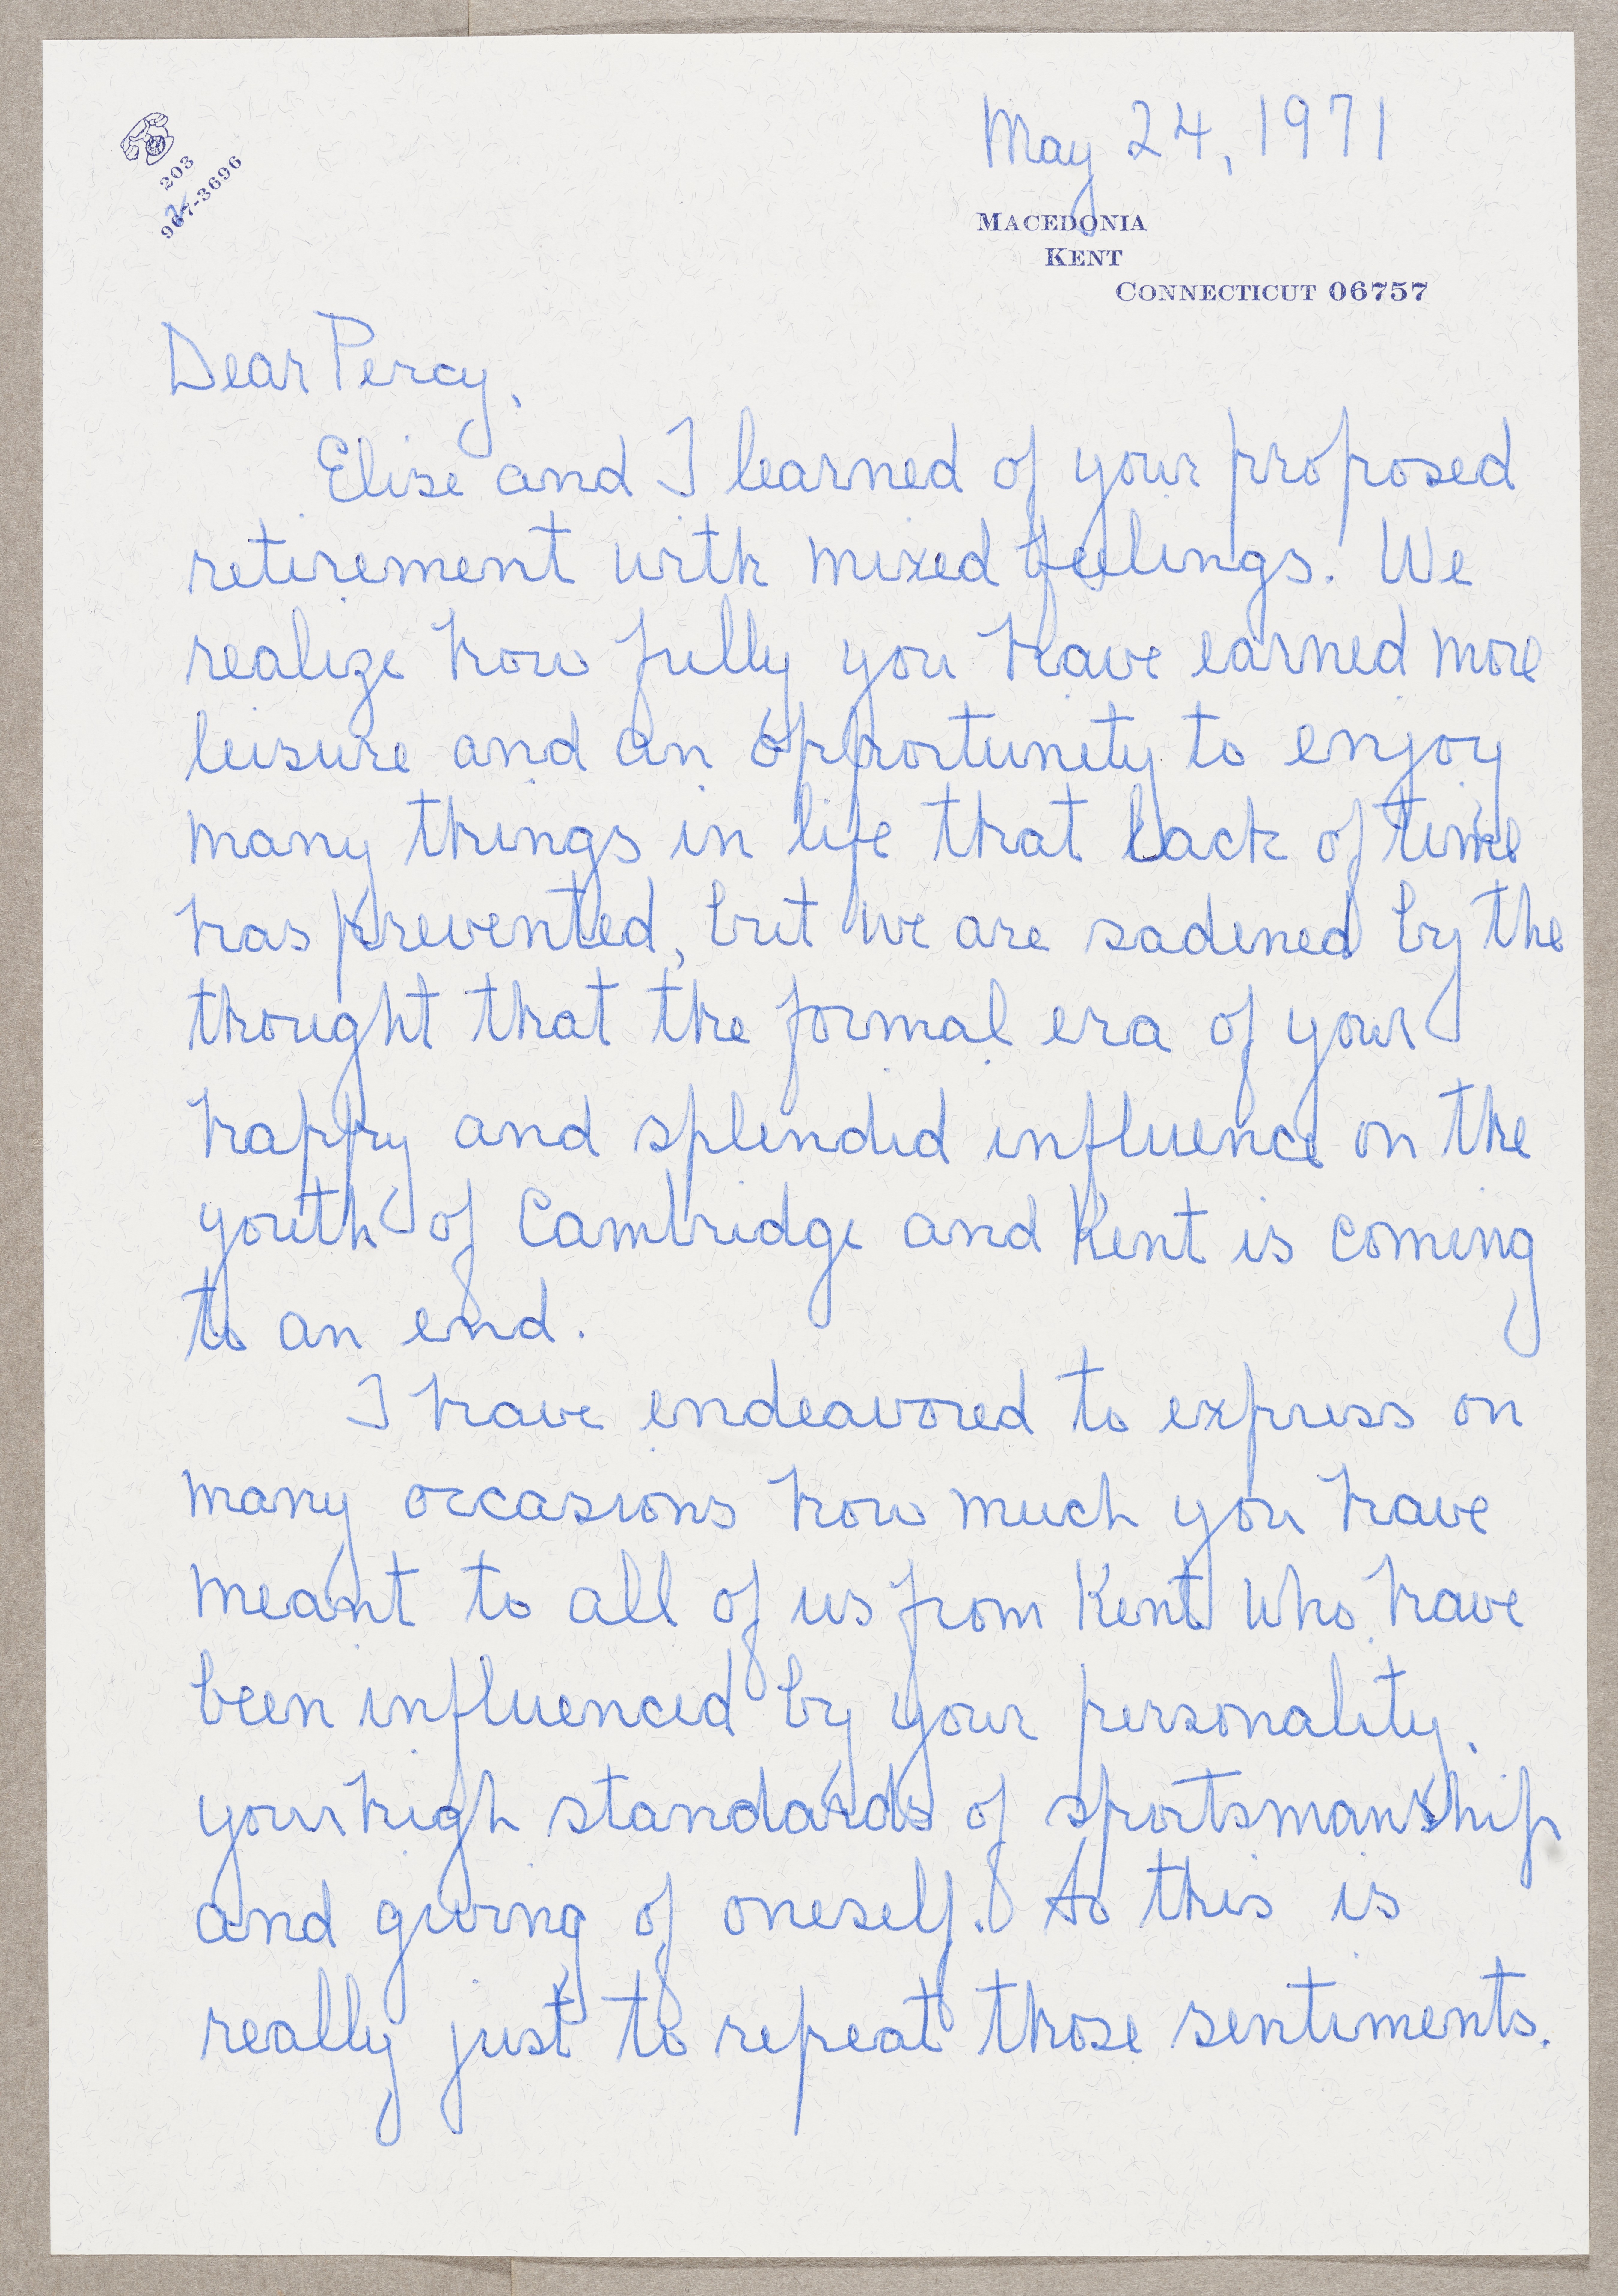 May 24, 1971
203
967-3696
MACEDONIA
KENT
CONNECTICUT 06757
Dear Percy,
Elise and I learned of your proposed
retirement with mixed feelings. We
realize how fully you have earned more
leisure and an opportunity to enjoy
many things in life that lack of time
has prevented, but we are sadened by the
thought that the formal era of your
happy and splendid influence on the
youth of Cambridge and Kent is coming
to an end.
I have endeavored to express on
many occasions how much you have
meant to all of us from Kent who have
been influenced by your personality,
your high standards of sportsmanship
and giving of oneself. So this is
really just to repeat those sentiments.